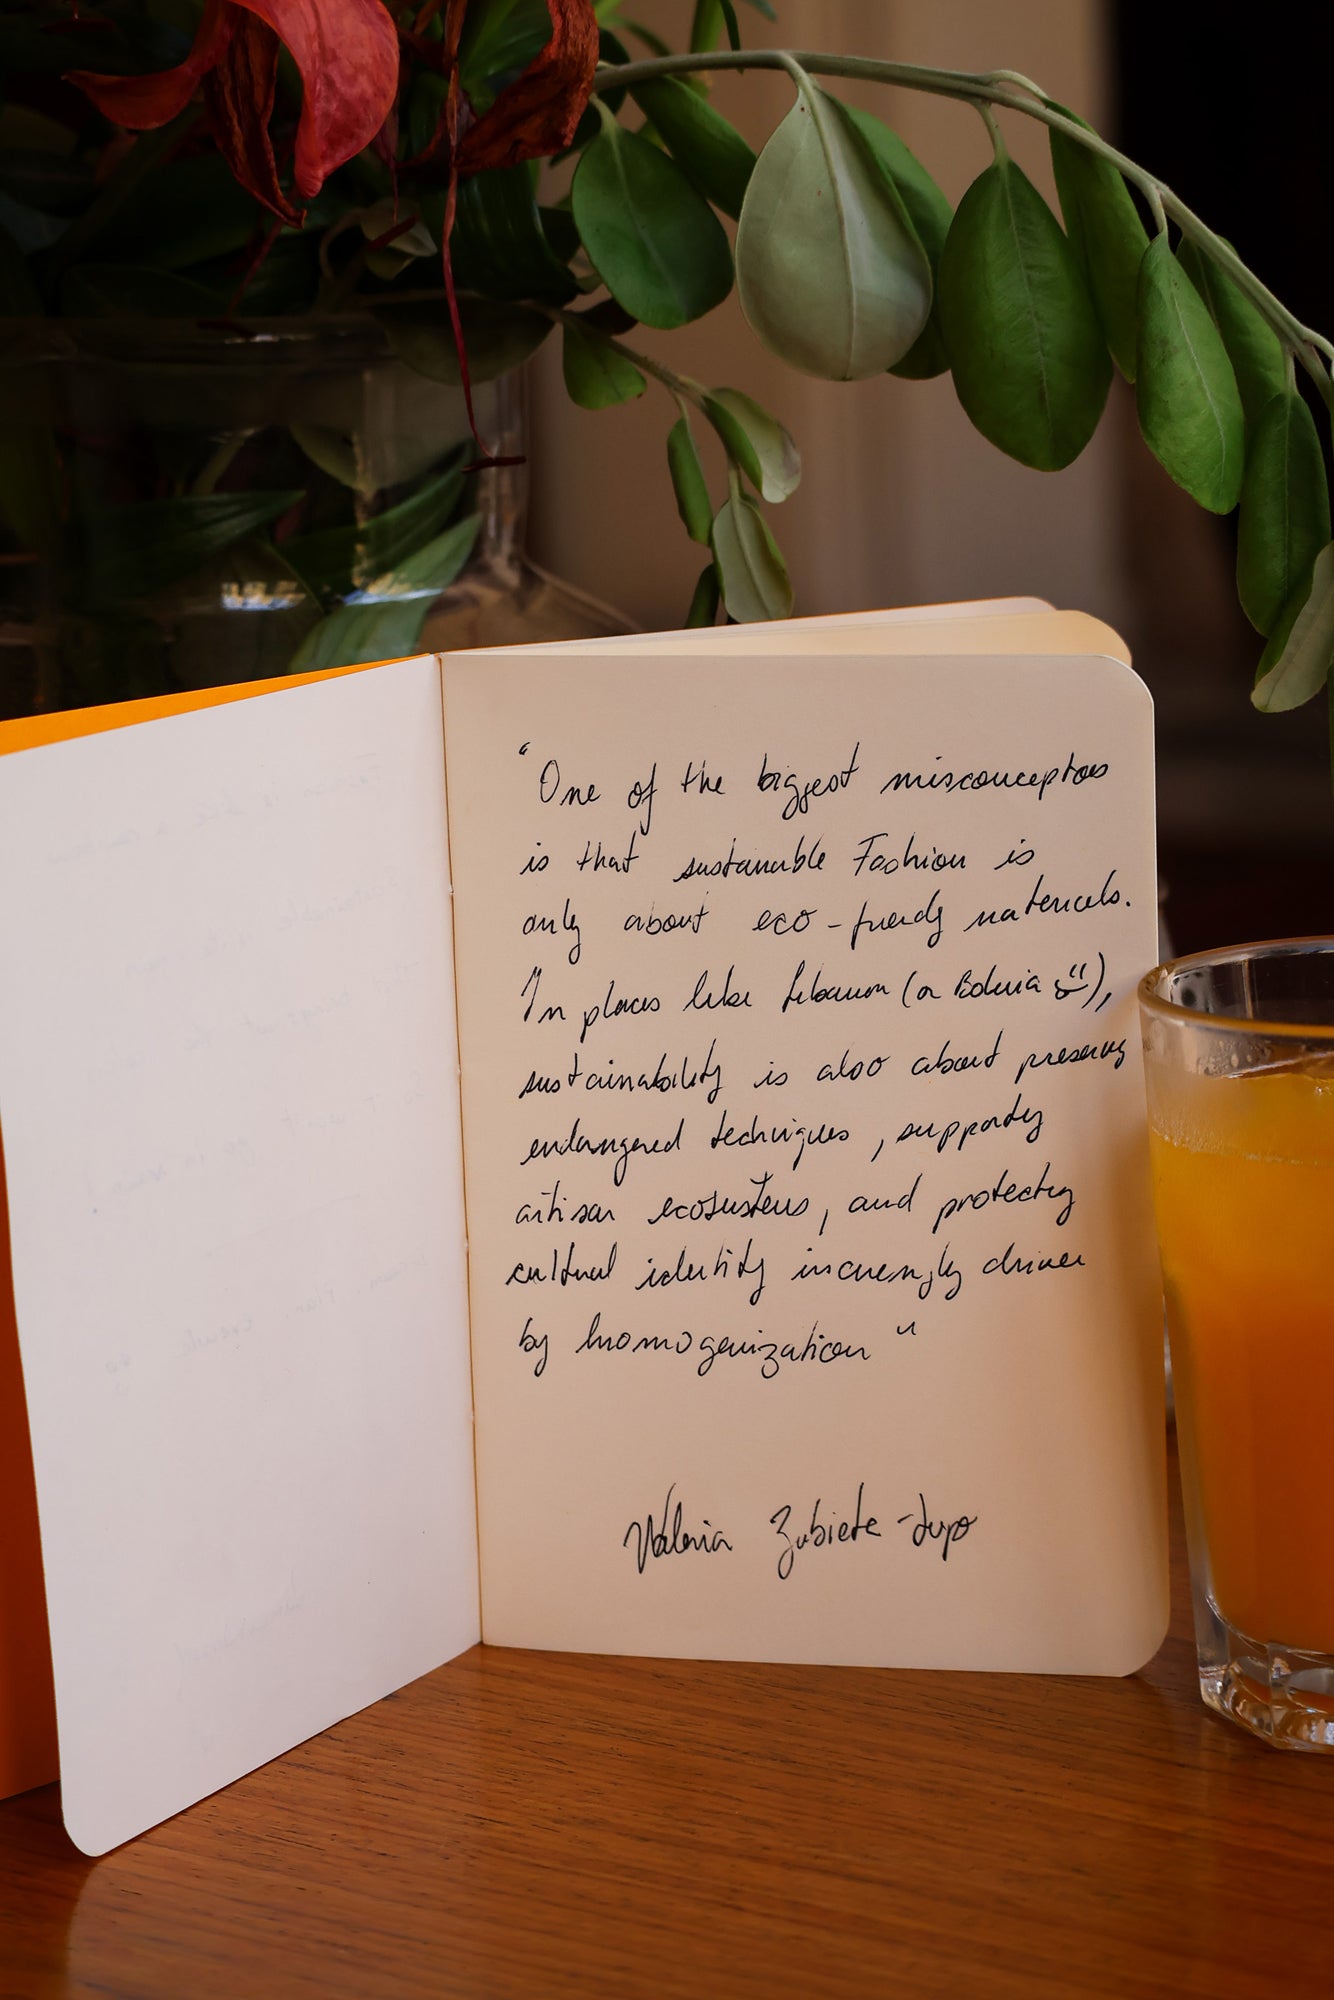 "One of the biggest misconceptions
is that sustainable Fashion is
only about eco-friendly materials.
In places like Lebanon (or Bolivia),
sustainability is also about preserving
endangered techniques, supporting
artisan ecosystems, and protecting
cultural identity increasingly driven
by homogenization"
Valeria Zubieta